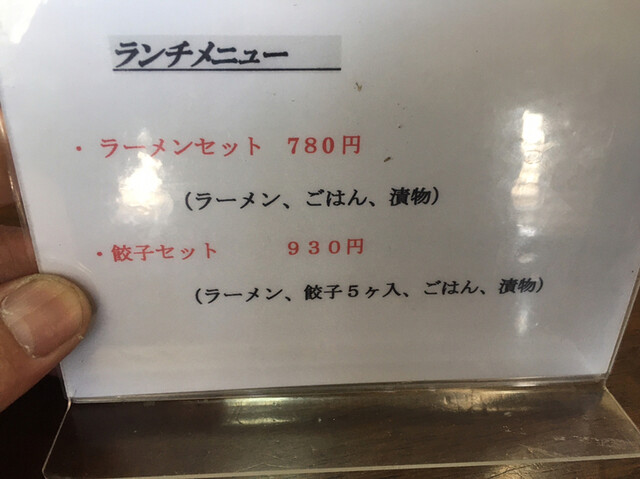 ランチメニュー
・ラーメンセット 780円
（ラーメン、ごはん、漬物）
・餃子セット ９３０円
（ラーメン、餃子５ヶ入、ごはん、漬物）